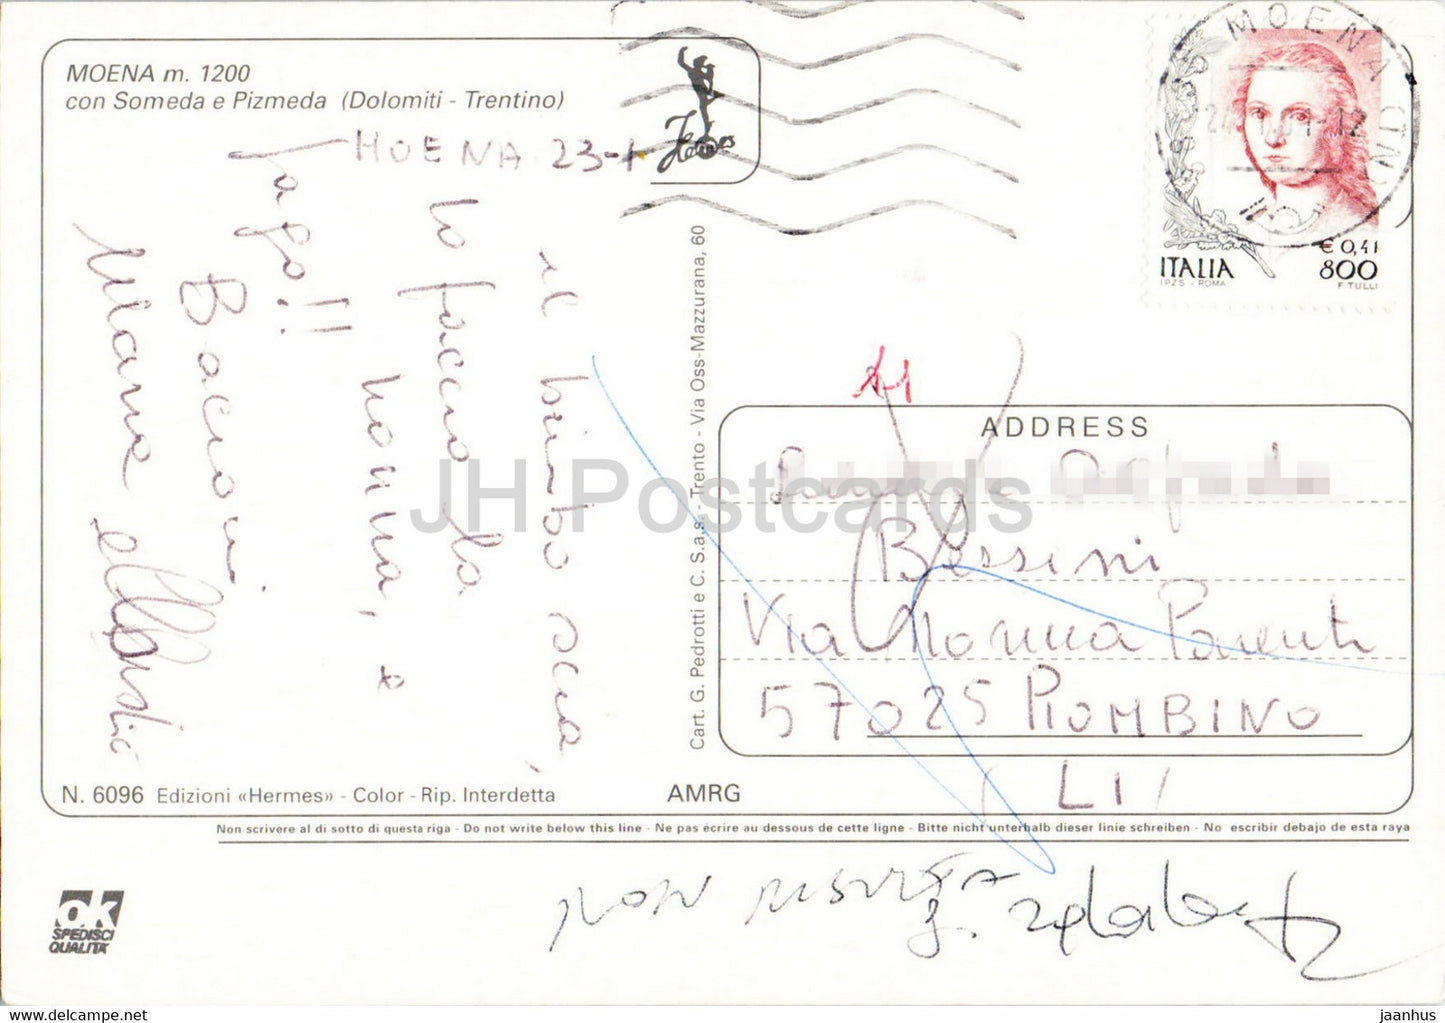 MOENA m. 1200
con Someda e Pizmeda (Dolomiti - Trentino)
Hermes
MOENA CTN
24
12
€ 0,41
ITALIA 800
IPZS - ROMA F. TULLI
MOENA 23-1
il bimbo scia,
lo faccio la
nonna, e
pago!!
Bacioni
Cart. G. Pedrotti e C. S.a.s. Trento - Via Oss-Mazzurana, 60
JH Postcards
ADDRESS
Bessini
Via Nonna Parenti
57025 PIOMBINO
(LI)
N. 6096 Edizioni «Hermes» - Color - Rip. Interdetta AMRG
Non scrivere al di sotto di questa riga - Do not write below this line - Ne pas écrire au dessous de cette ligne - Bitte nicht unterhalb dieser linie schreiben - No escribir debajo de esta raya
NON RISULTA
ok
SPEDISCI
QUALITÀ
jaanhus
https://www.hipstamp.com/store/jh-postcards